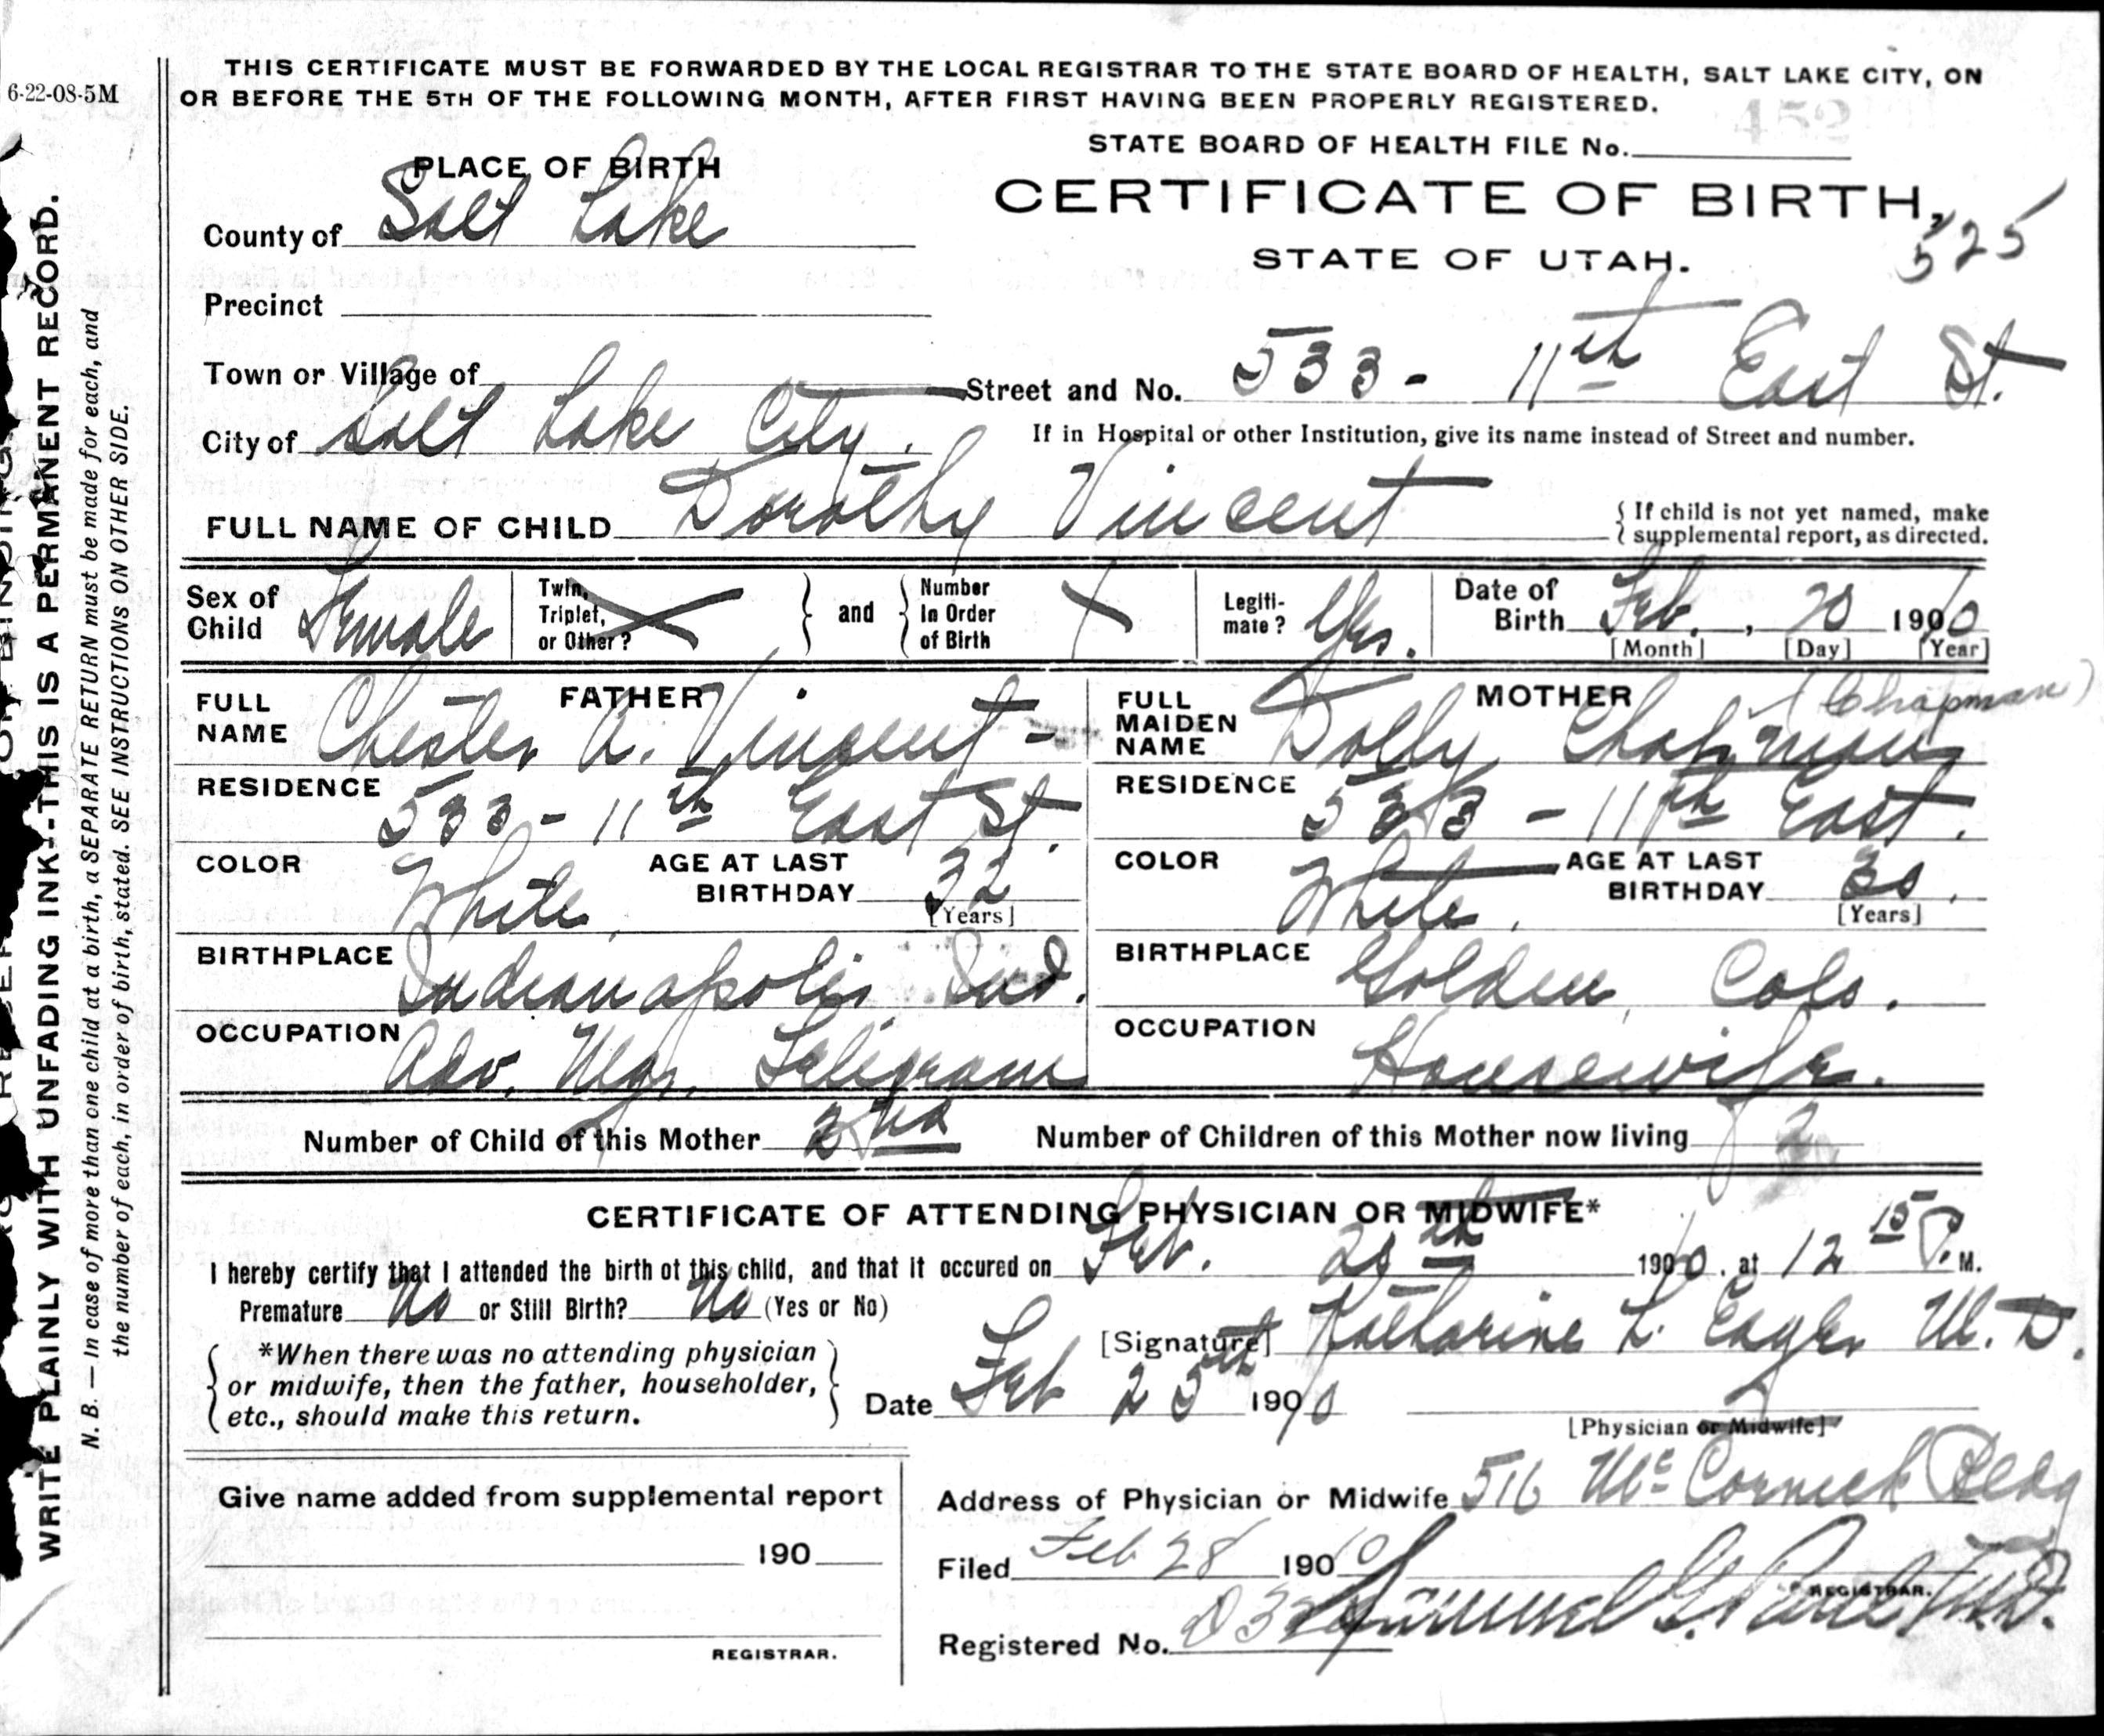 6-22-08-5M
THIS CERTIFICATE MUST BE FORWARDED BY THE LOCAL REGISTRAR TO THE STATE BOARD OF HEALTH, SALT LAKE CITY, ON
OR BEFORE THE 5TH OF THE FOLLOWING MONTH, AFTER FIRST HAVING BEEN PROPERLY REGISTERED.
452
STATE BOARD OF HEALTH FILE No.
PLACE OF BIRTH
CERTIFICATE OF BIRTH,
County of Salt Lake
STATE OF UTAH.
525
Precinct
Town or Village of
Street and No. 533 - 11th East St.
City of Salt Lake City.
If in Hospital or other Institution, give its name instead of Street and number.
FULL NAME OF CHILD Dorothy Vincent
{ If child is not yet named, make
{ supplemental report, as directed.
Sex of Child Female
Twin, Triplet, or Other?
} and {
Number In Order of Birth
Legitimate? Yes.
Date of Birth Feb. , 20 1910
[Month] [Day] [Year]
FATHER
FULL NAME Chester A. Vincent -
MOTHER (Chapman)
FULL MAIDEN NAME Dolly Chapman
RESIDENCE 533 - 11th East St.
RESIDENCE 533 - 11th East.
COLOR White.
AGE AT LAST BIRTHDAY 32
[Years]
COLOR White.
AGE AT LAST BIRTHDAY 30.
[Years]
BIRTHPLACE Indianapolis Ind.
BIRTHPLACE Golden, Colo.
OCCUPATION Adv. Mgr. Telegram
OCCUPATION Housewife.
Number of Child of this Mother 2nd
Number of Children of this Mother now living 2
CERTIFICATE OF ATTENDING PHYSICIAN OR MIDWIFE*
I hereby certify that I attended the birth of this child, and that it occured on Feb. 20th 1910. at 12 15 P. M.
Premature No or Still Birth? No (Yes or No)
[Signature] Katharine L. Eagle M.D.
{ *When there was no attending physician }
{ or midwife, then the father, householder, }
{ etc., should make this return. }
Date Feb 25th 1910
[Physician or Midwife]
Give name added from supplemental report
190
REGISTRAR.
Address of Physician or Midwife 516 McCornick Bldg
Filed Feb 28 1910
REGISTRAR.
Registered No.
WRITE PLAINLY WITH UNFADING INK--THIS IS A PERMANENT RECORD.
N. B. — In case of more than one child at a birth, a SEPARATE RETURN must be made for each, and
the number of each, in order of birth, stated. SEE INSTRUCTIONS ON OTHER SIDE.